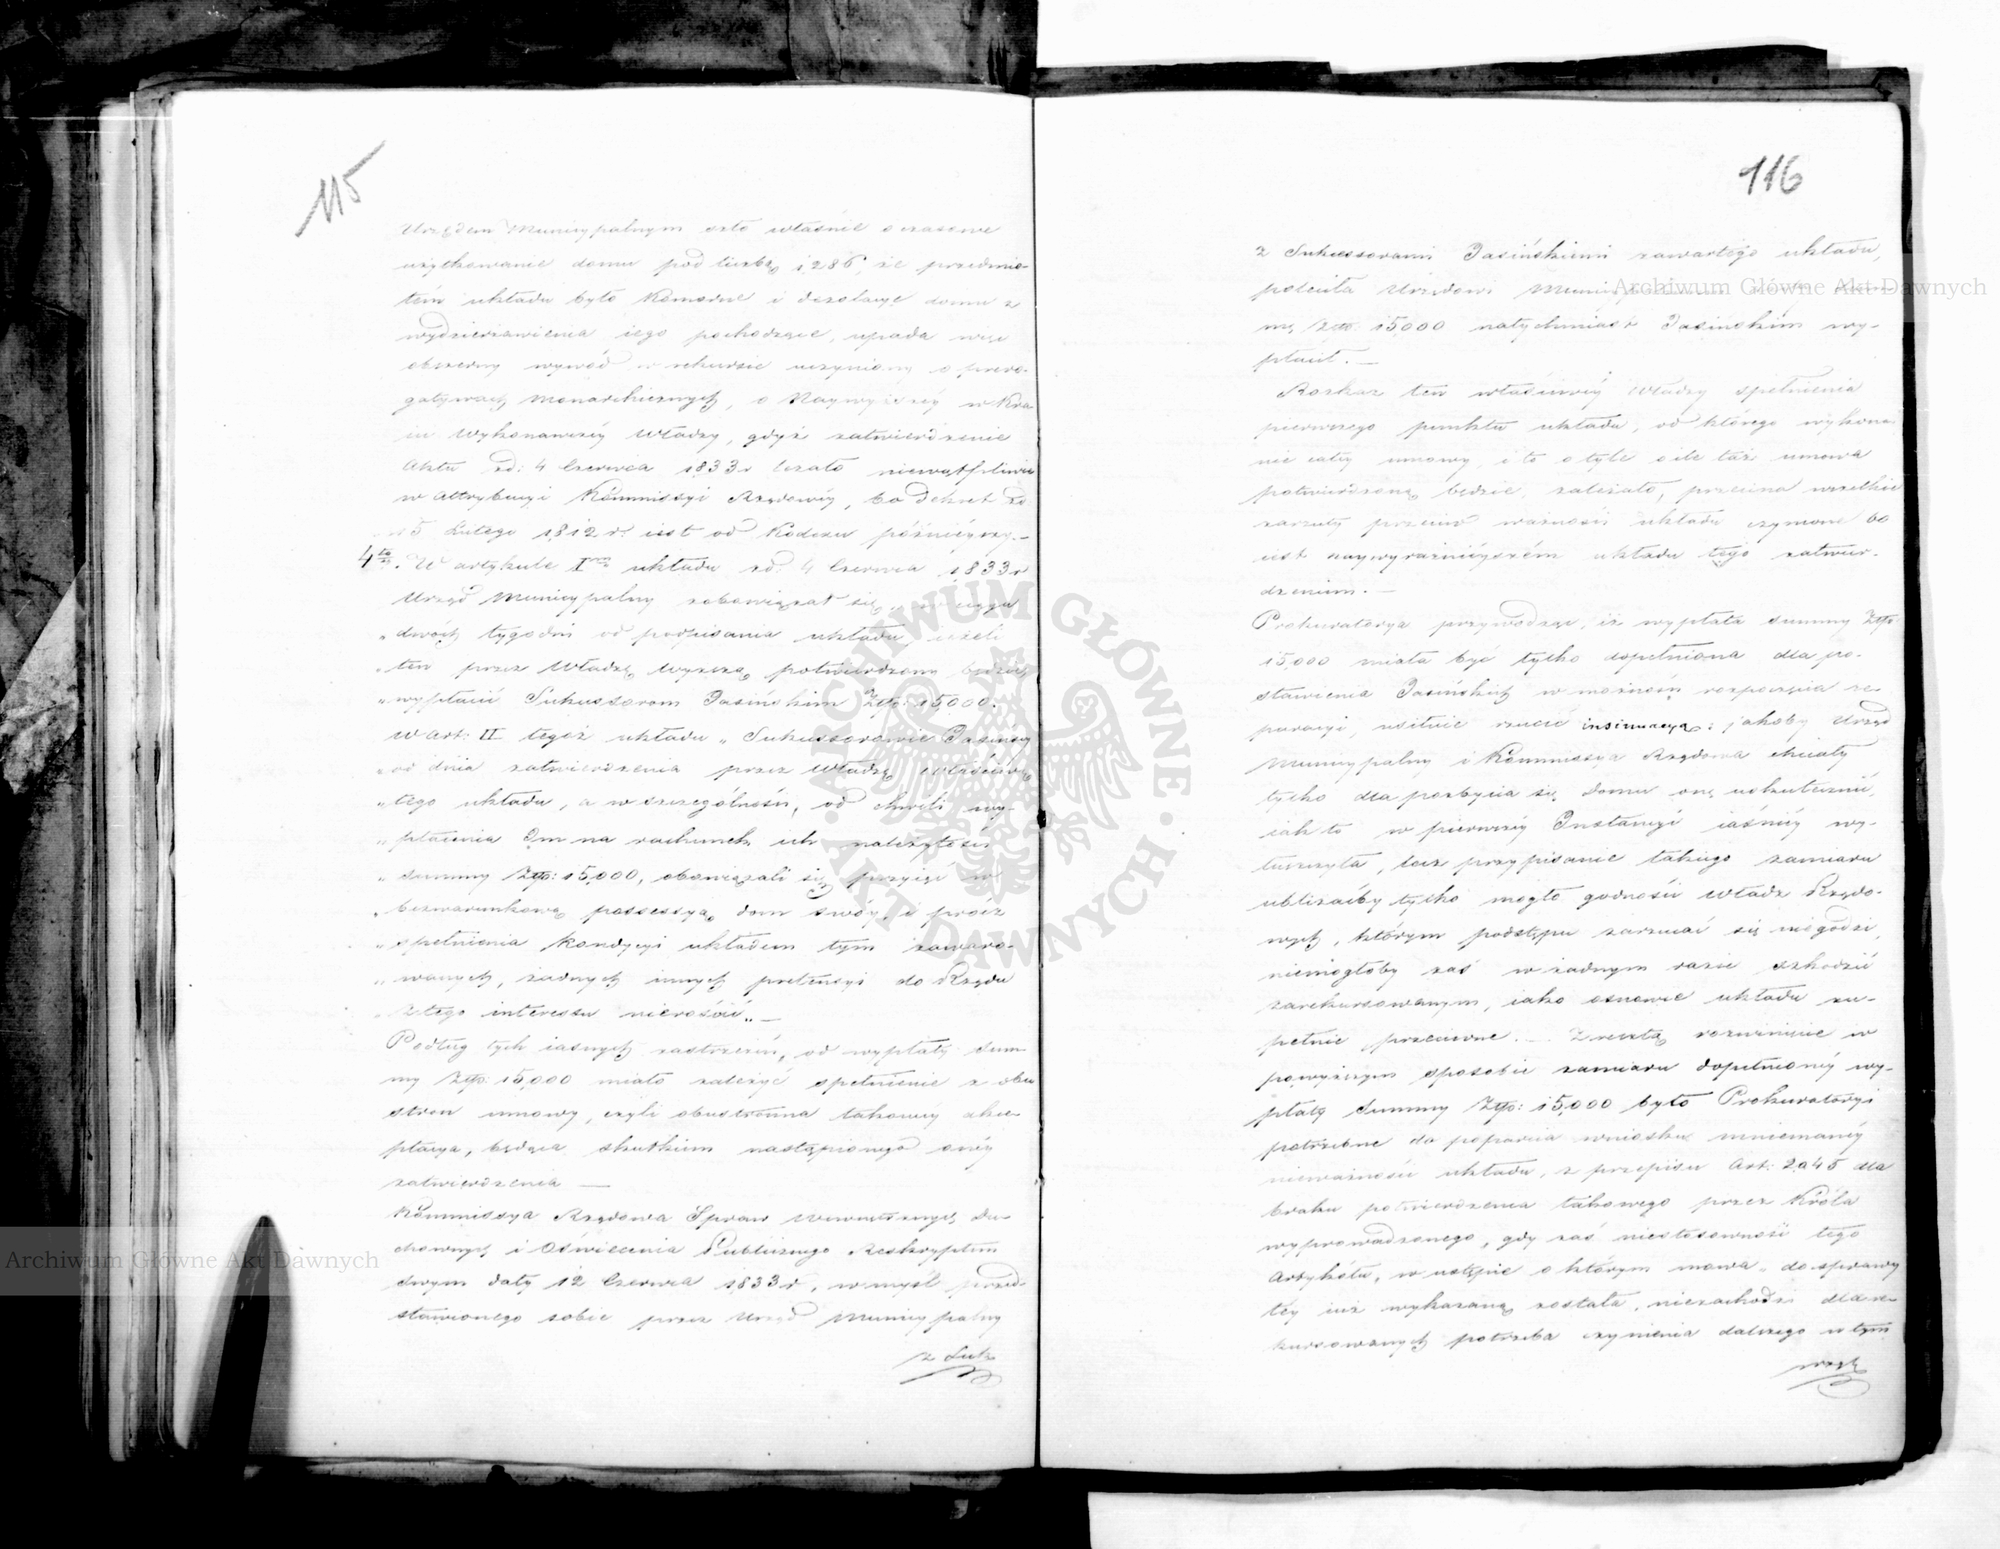 115
Urzędem Municypalnym szło właśnie o czasowe
użytkowanie domu pod liczbą 1286, że przedmio-
tem układu było Komorne i dezolacye domu z
wydzierżawienia iego pochodzące, upada więc
obszerny wywód w rekursie uczyniony o prero-
gatywach monarchicznych, o Naywyższéy w Kra-
iu Wykonawczéy Władzy, gdyż zatwierdzenie
Aktu zd: 4 Czerwca 1833 r leżało niewątpliwie
w attrybucyi Kommissyi Rządowéy, bo Dekret zd
5 Lutego 1812 r. iest od Kodexu późnieyszy.-
4to. W artykule Imm układu zd: 4 Czerwca 1833 r
Urząd Municypalny zobowiązał się „ w ciągu
„ dwóch tygodni od podpisania układu, ieżeli
„ ten przez Władzę wyższą potwierdzony będzie,
„ wypłacić Sukcessorom Jasińskim Złp: 15,000.
W art: II tegoż układu „ Sukcessorowie Jasińscy
„ od dnia zatwierdzenia przez Władzę właściwą
„ tego układu, a w szczególności, od chwili wy-
„ płacenia Im na rachunek ich należytości
„ summy Złp: 15,000, obowiązali się przyiąć w
„ bezwarunkową possessyą dom swóy, i prócz
„ spełnienia kondycyi układem tym zawaro-
„ wanych, żadnych innych pretensyi do Rządu
„ z tego interessu nierościć „. —
Podług tych iasnych zastrzeżeń, od wypłaty sum-
my Złp: 15,000 miało zależyć spełnienie z obu
stron umowy, czyli obustronna takowéy akce-
ptacya, będąca skutkiem nastąpionego onéy
zatwierdzenia —
Kommissya Rządowa Spraw Wewnętrznych, Du-
chownych i Oświecenia Publicznego Reskryptem
swym daty 12 Czerwca 1833 r, w myśl przed-
stawionego sobie przez Urząd Municypalny
z Suk
116
z Sukcessorami Jasińskiemi zawartego układu,
poleciła Urzędowi
mę Złp: 15,000 natychmiast Jasińskim wy-
płacił. —
Rozkaz ten właściwéy Władzy spełnienia
pierwszego punktu układu, od którego wykona-
nie całéy umowy, i to o tyle o ile taż umowa
potwierdzoną będzie, zależało, przecina wszelkie
zarzuty przeciw ważności układu czynione bo
iest naywyraźnieyszém układu tego zatwier-
dzeniem. —
Prokuratorya przywodząc, iż wypłata summy Złp:
15,000 miała być tylko dopełniona dla po-
stawienia Jasińskich w możności rozpoczęcia re-
paracyi, usiłuie rzucić insinuacyą: jakoby Urząd
Municypalny i Kommissya Rządowa chciały
tylko dla pozbycia się Domu onę uskutecznić,
iak to w pierwszéy Instancyi iaśniéy wy-
łuszczyła, lecz przypisanie takiego zamiaru
ubliżaćby tylko mogło godności Władz Rządo-
wych, którym podstępu zarzucać się niegodzi,
niemogłoby zaś w żadnym razie szkodzić
zarekursowanym, iako osnowie układu zu-
pełnie przeciwne. — Zresztą rozwinięcie w
powyższym sposobie zamiaru dopełnionéy wy-
płaty Summy Złp: 15,000 było Prokuratoryi
potrzebne do poparcia wniosku mniemanéy
nieważności układu, z przepisu Art: 2045 dla
braku potwierdzenia takowego przez Króla
wyprowadzonego, gdy zaś niestosowność tego
Artykułu, w ustępie o którym mowa, do sprawy
téy iuż wykazaną została, niezachodzi dla re-
kursowanych potrzeba czynienia dalszego w tym
wzgl
Archiwum Główne Akt Dawnych
Archiwum Główne Akt Dawnych
ARCHIWUM GŁÓWNE AKT DAWNYCH